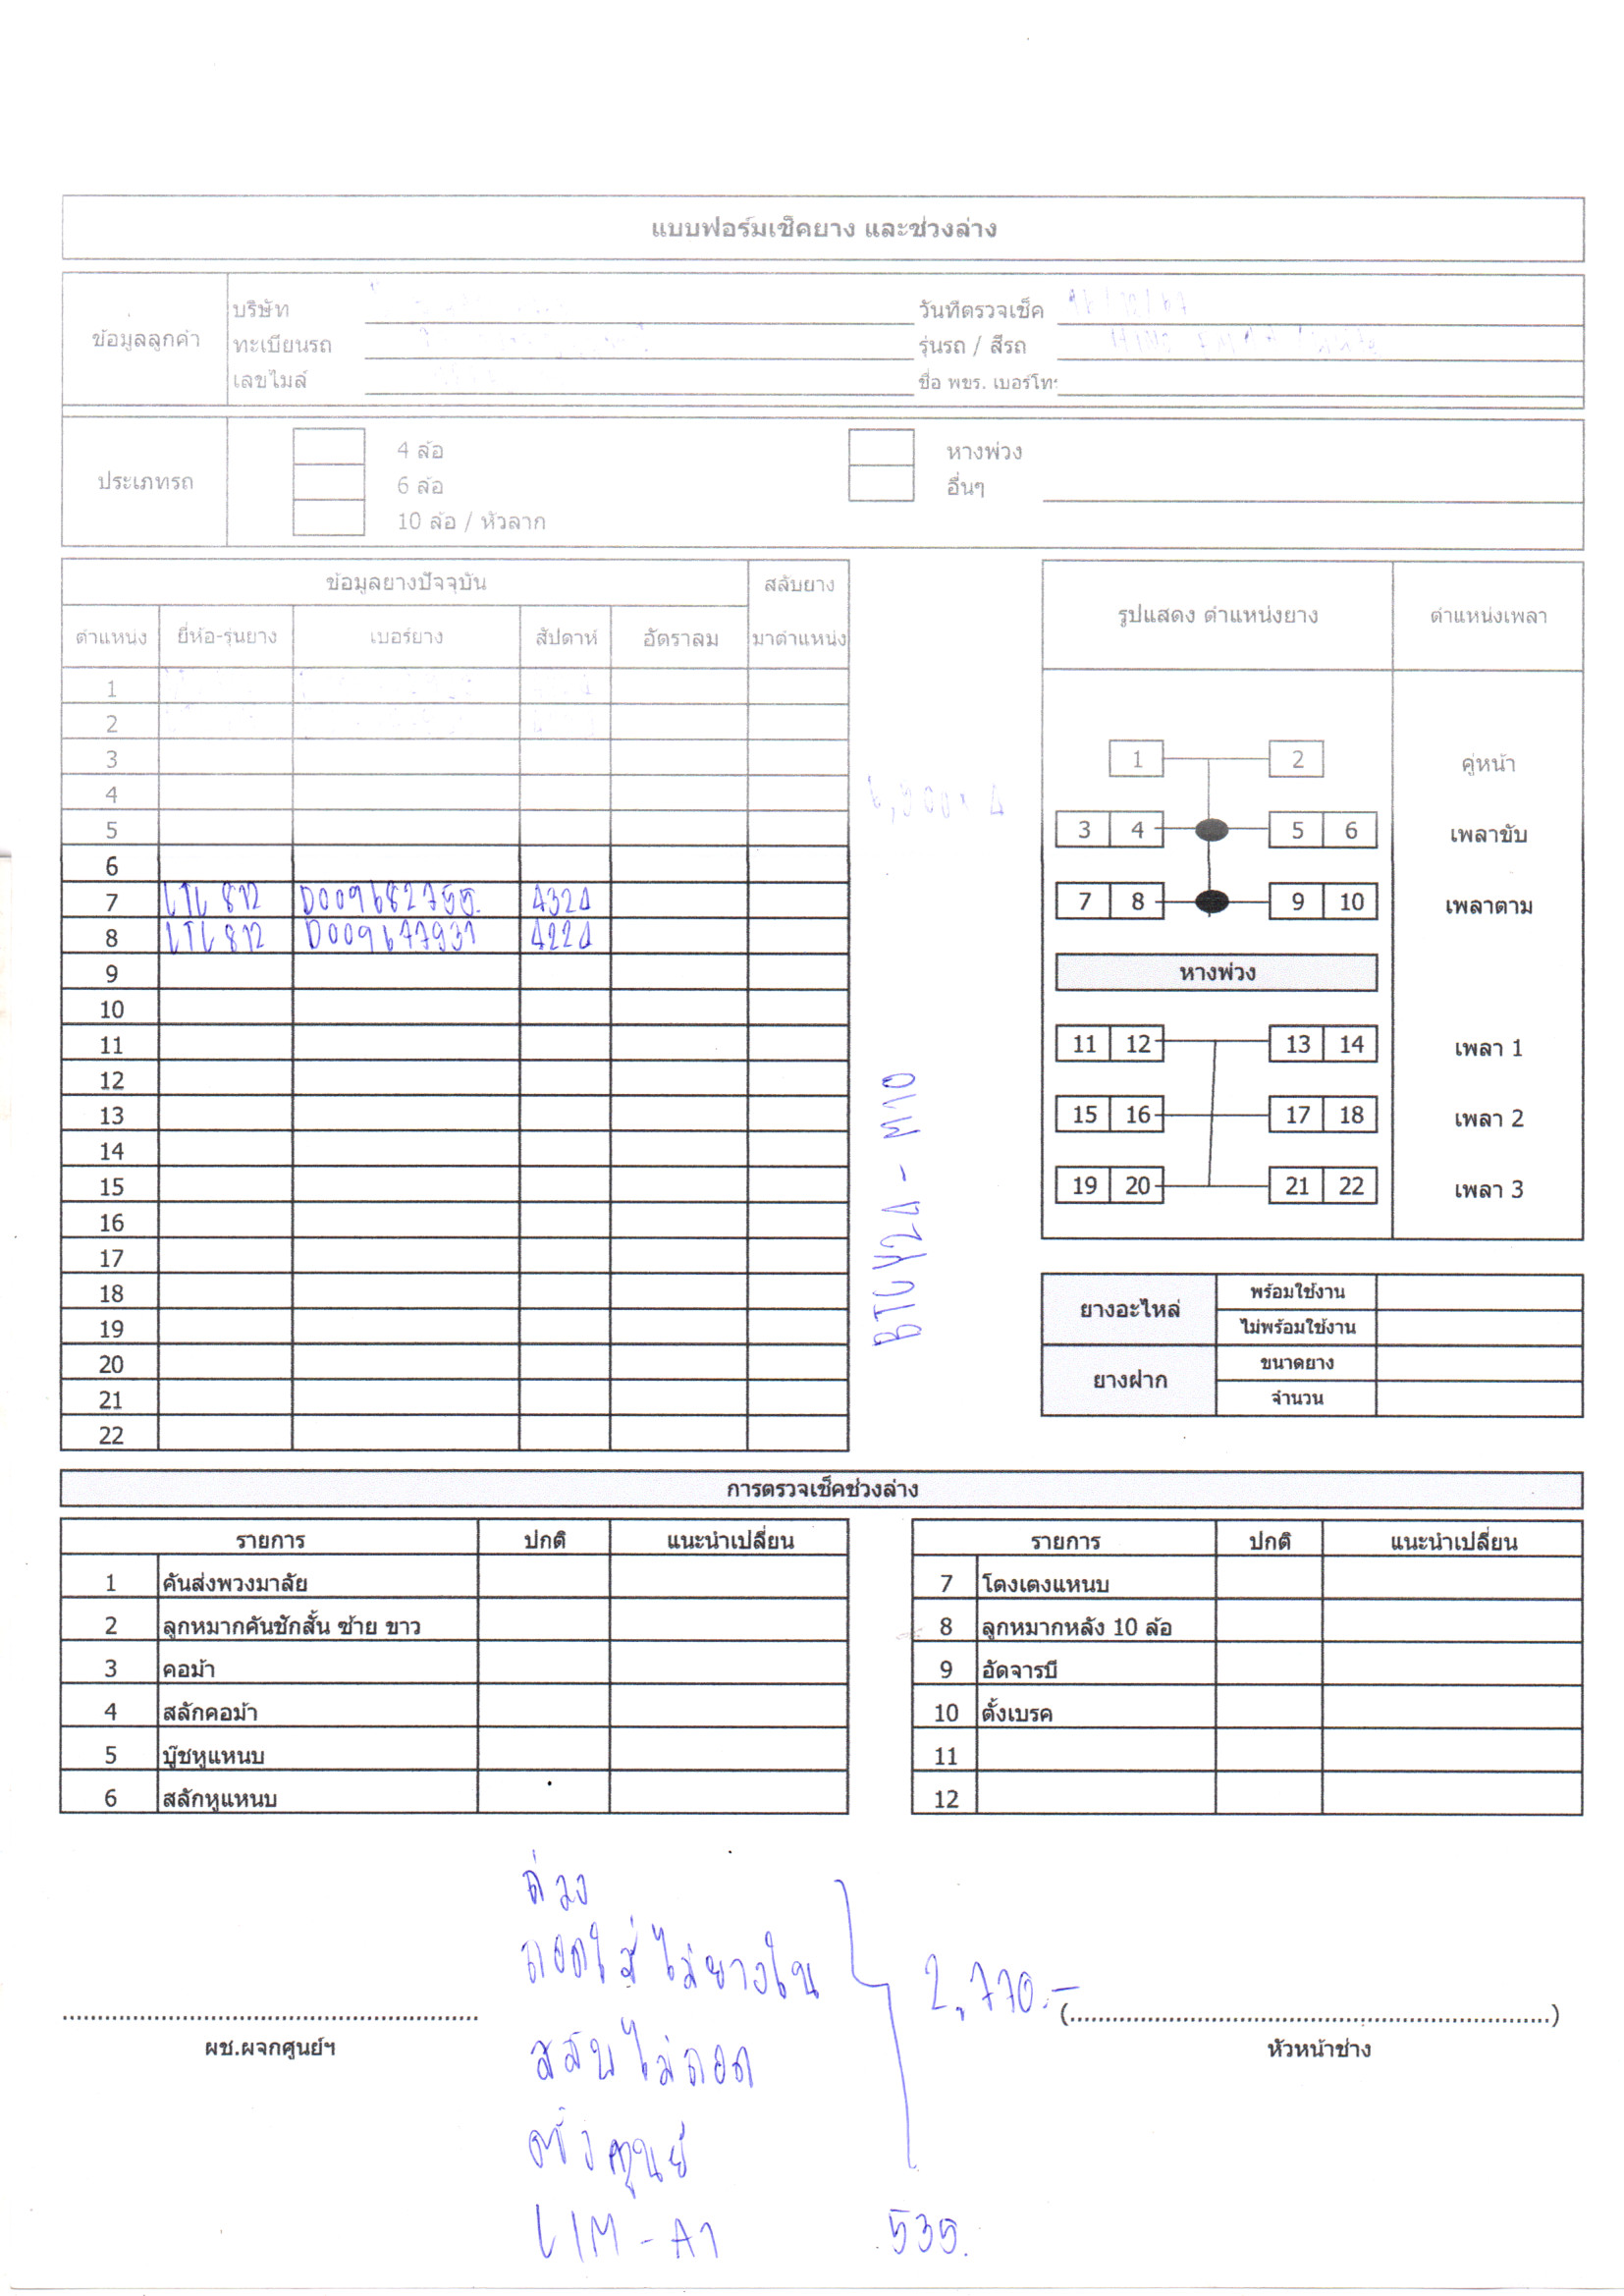 แบบฟอร์มเช็คยาง และช่วงล่าง
ข้อมูลลูกค้า
บริษัท
วันที่ตรวจเช็ค
ทะเบียนรถ
รุ่นรถ / สีรถ
เลขไมล์
ชื่อ พขร. เบอร์โทร
ประเภทรถ
4 ล้อ
6 ล้อ
10 ล้อ / หัวลาก
หางพ่วง
อื่นๆ
ข้อมูลยางปัจจุบัน สลับยาง
ตำแหน่ง ยี่ห้อ-รุ่นยาง เบอร์ยาง สัปดาห์ อัตราลม มาตำแหน่ง
1
2
3
4
5
6
7 LTL 812 D009682755. 4324
8 LTL 812 D009677931 4224
9
10
11
12
13
14
15
16
17
18
19
20
21
22
รูปแสดง ตำแหน่งยาง ตำแหน่งเพลา
1 2 คู่หน้า
3 4 5 6 เพลาขับ
7 8 9 10 เพลาตาม
หางพ่วง
11 12 13 14 เพลา 1
15 16 17 18 เพลา 2
19 20 21 22 เพลา 3
ยางอะไหล่ พร้อมใช้งาน
ไม่พร้อมใช้งาน
ยางฝาก ขนาดยาง
จำนวน
การตรวจเช็คช่วงล่าง
รายการ ปกติ แนะนำเปลี่ยน
1 คันส่งพวงมาลัย
2 ลูกหมากคันชักสั้น ซ้าย ขาว
3 คอม้า
4 สลักคอม้า
5 บู๊ชหูแหนบ
6 สลักหูแหนบ
รายการ ปกติ แนะนำเปลี่ยน
7 โตงเตงแหนบ
8 ลูกหมากหลัง 10 ล้อ
9 อัดจารบี
10 ตั้งเบรค
11
12
ถ่วง
ถอดใส่ไม่ยางใน
2,770.-
สลับไม่ถอด
ตั้งศูนย์
LIM-A1 535.
ผช.ผจกศูนย์ฯ
(..........)
หัวหน้าช่าง